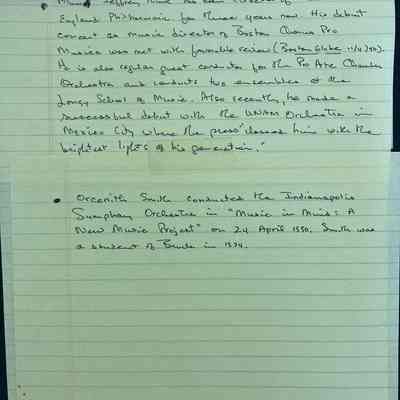 England Philharmonic for three years now. His debut
concert as music director of Boston Chorus Pro
Musica was met with favorable review (Boston Globe
He is also regular guest conductor for the Pro Arte Chamber
Orchestra and conducts two ensembles at the
Longy School of Music. Also recently, he made a
successful debut with the UNAM Orchestra in
Mexico City where the press "classed him with the
brightest lights of his generation."
• Orcenith Smith conducted the Indianapolis
Symphony Orchestra in "Music in Mind: A
New Music Project" on 24 April 1990. Smith was
a student of in 1974.